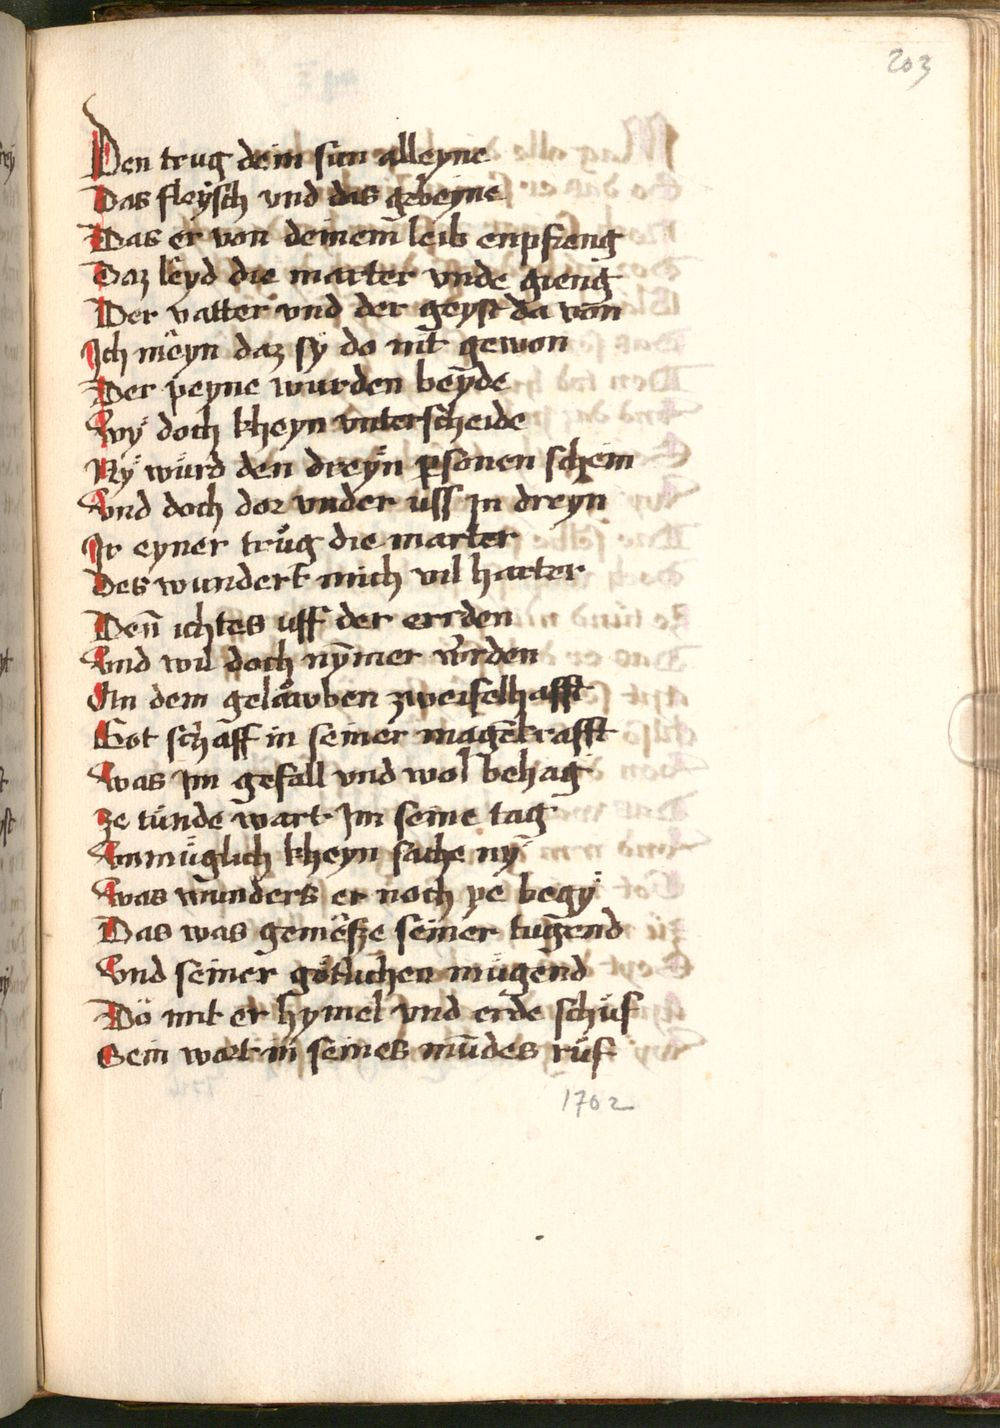 203
Den trug dein sun alleyne
Das fleÿsch vnd das gebeyne
Das er von deinem̄ leib enpfieng
Daz lêyd die marter vnde gieng
Der vatter vnd der geyst da von̄
Ich mêyn daz sÿ do nit gewon
Der peyne wurden beyde
Wÿ doch kheyn vnterscheide
Nÿ wurd den dreÿn ꝑsonen schein
Vnd doch dor vnder uss In dreyn
Ir eyner trůg die marter
Des wundert mich vil harter
Den̄ ichtes uff der errden
Vnd wil doch nȳmer werden
An dem gelawben zweifelhafft
Got schaff in seiner magenkrafft
Was Im gefall vnd wol behag
Ze tünde wart Im seine tag
Vnmüglich kheyn sache nÿ
Was wunders er noch ye begÿ
Das was gemêsze seiner tugend
Vnd seiner götlichen mügend
Dö mit er hymel vnd erde schůf
Sein wort in seines mūdes růf
1702